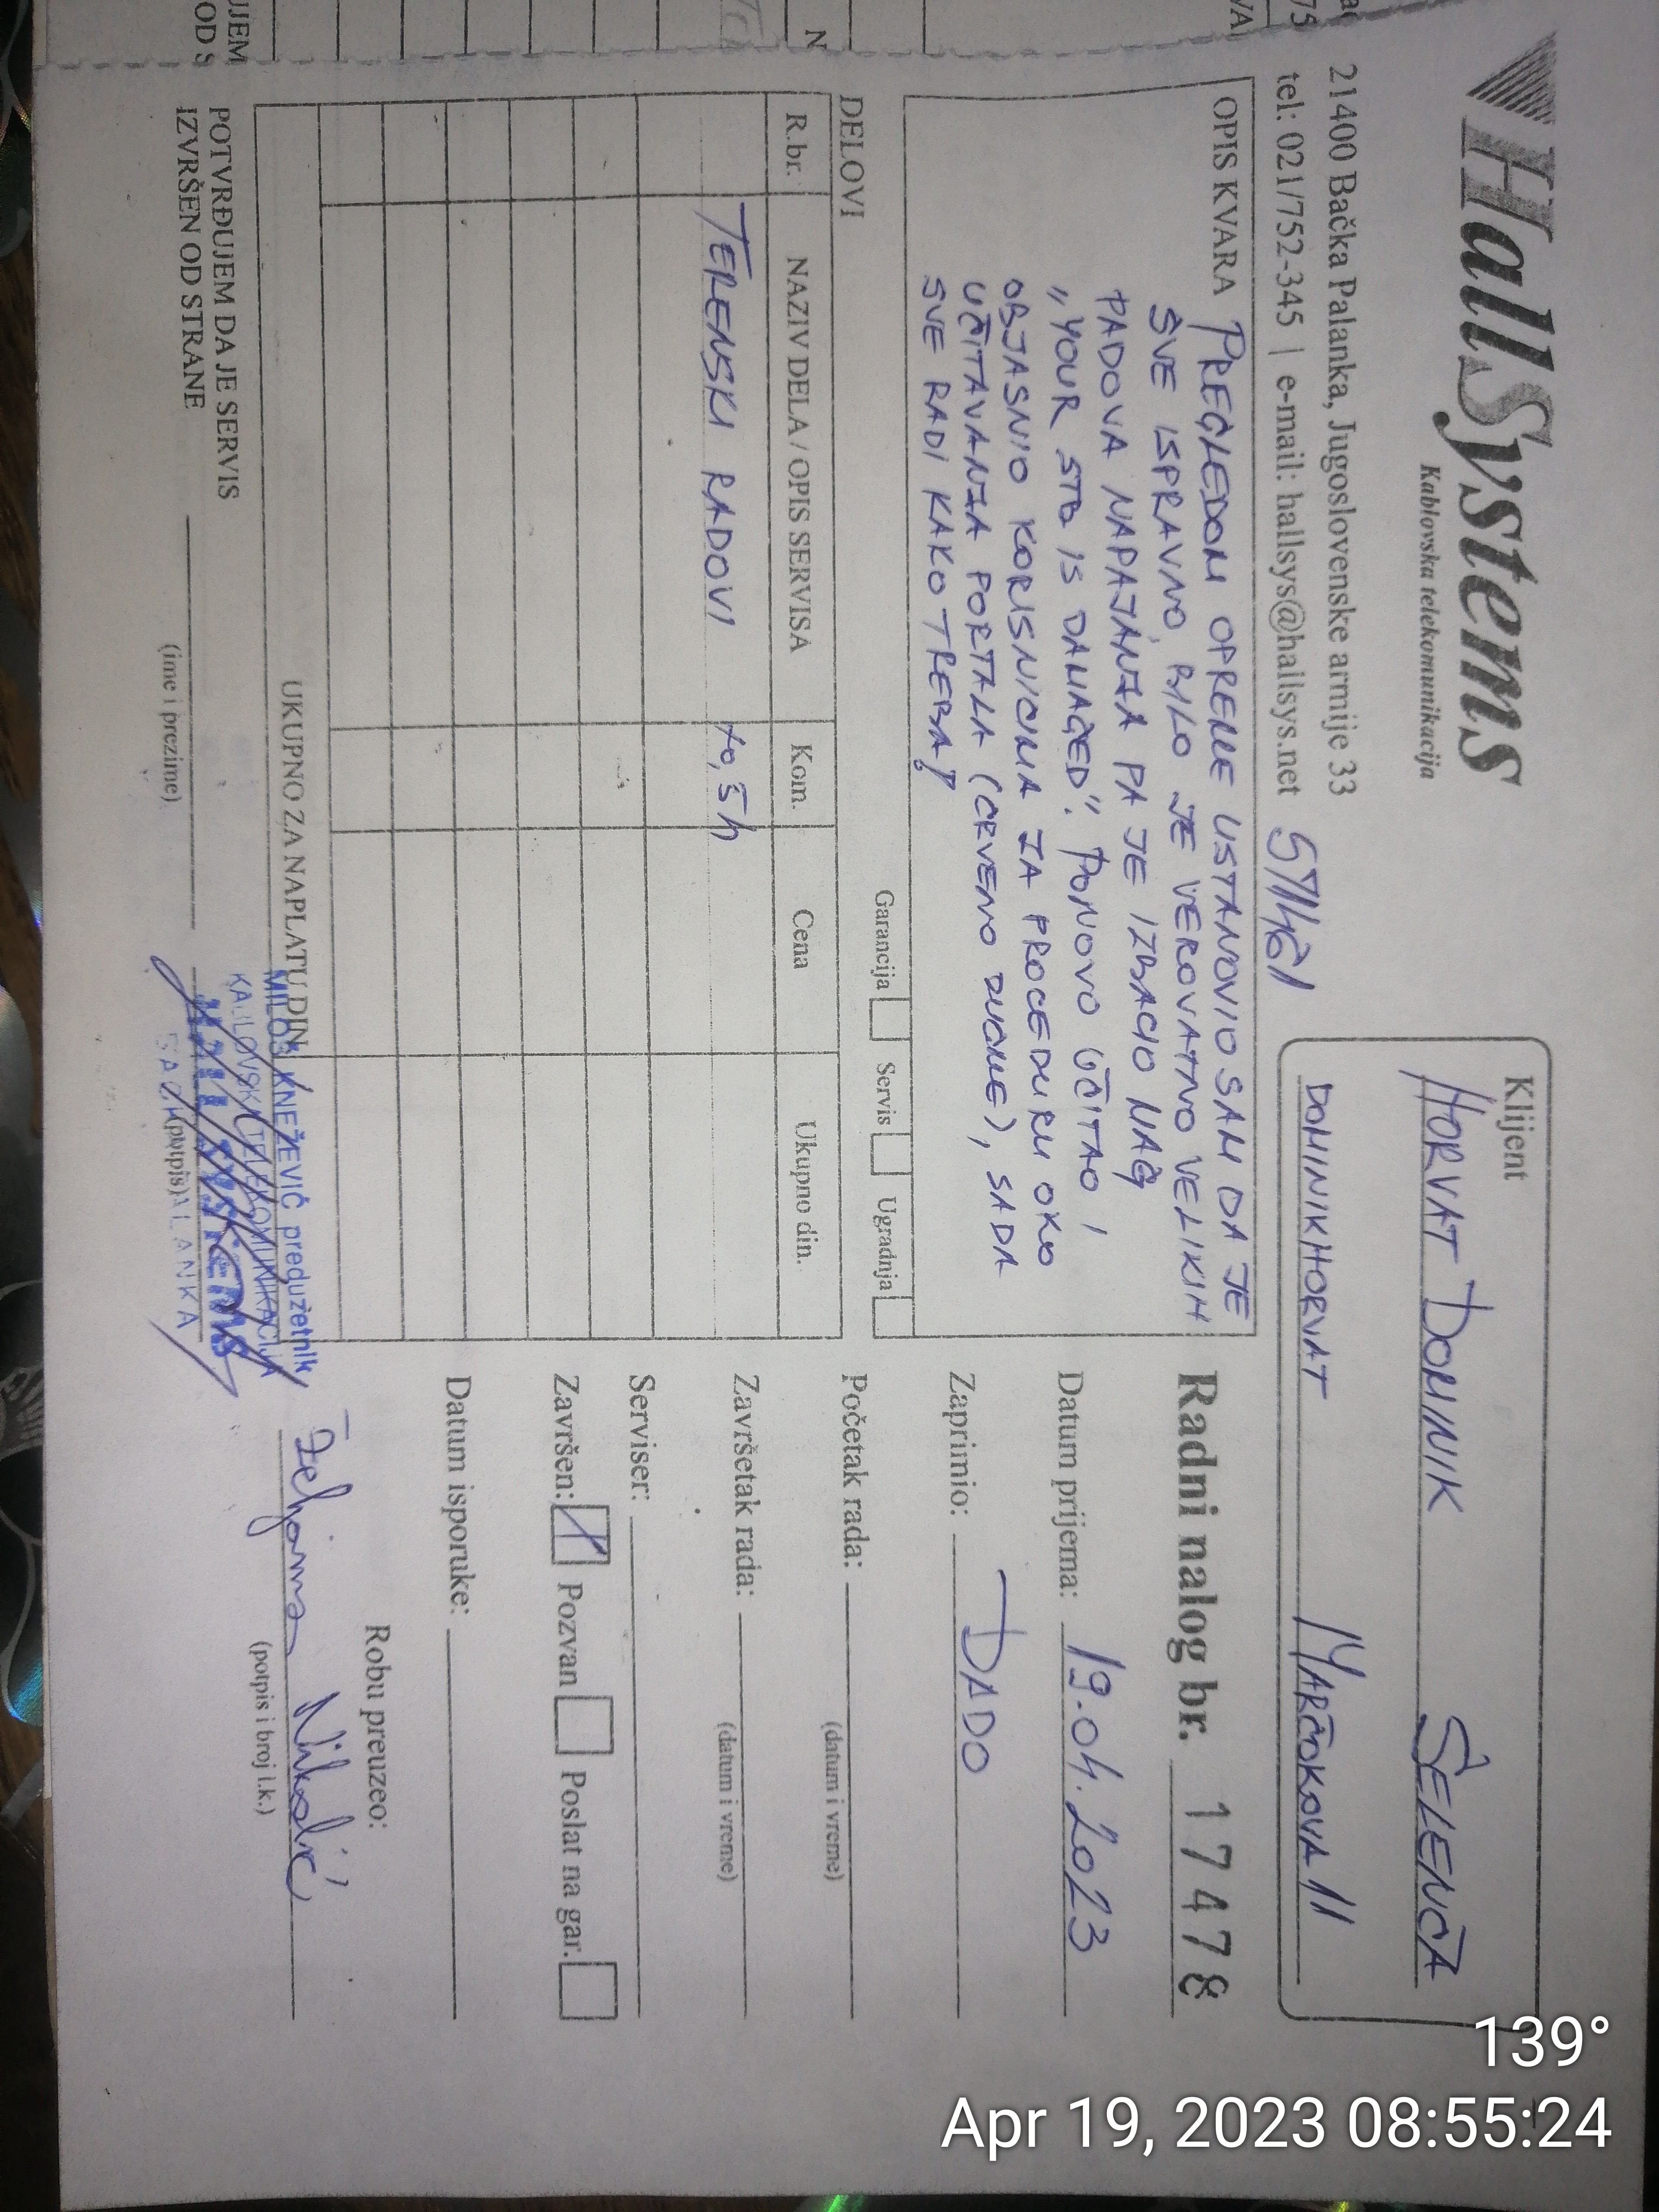 HallSystems
Kablovska telekomunikacija
21400 Bačka Palanka, Jugoslovenske armije 33
tel: 021/752-345 | e-mail: hallsys@hallsys.net
Klijent
HORVAT DOMINIK ŠELENČA
DOMINIKHORVAT MARČOKOVA 11
OPIS KVARA PREGLEDOM OPREME USTANOVIO SAM DA JE
SVE ISPRAVNO, BILO JE VEROVATNO VELIKIH
PADOVA NAPAJANJA PA JE IZBACIO NAG
„YOUR STB IS DAMAGED". PONOVO UČITAO I
OBJASNIO KORISNICIMA ZA PROCEDURU OKO
UČITAVANJA PORTALA (CRVENO DUGME), SADA
SVE RADI KAKO TREBA!
Garancija Servis Ugradnja
DELOVI
R.br. NAZIV DELA / OPIS SERVISA Kom. Cena Ukupno din.
TERENSKI RADOVI
UKUPNO ZA NAPLATU DIN.
POTVRĐUJEM DA JE SERVIS
IZVRŠEN OD STRANE
(ime i prezime)
(potpis)
MILOŠ KNEŽEVIĆ preduzetnik
KABLOVSKA TELEKOMUNIKACIJA
Hall Systems
BAČKA PALANKA
Radni nalog br. 17478
Datum prijema: 19.04.2023
Zaprimio: DADO
Početak rada:
(datum i vreme)
Završetak rada:
(datum i vreme)
Serviser:
Završen: Pozvan Poslat na gar.
Datum isporuke:
Robu preuzeo:
Nikolić
(potpis i broj l.k.)
139°
Apr 19, 2023 08:55:24